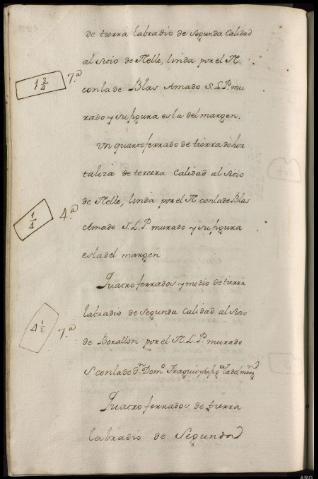 de tierra labradio de Segunda Calidad
al Sitio de Nelle, linda por el N.
con la de Blas Amado S. L. P. mu
rado y su figura es la del margen.
Un quarto ferrado de tierra de hor
taliza de tercera Calidad al Sitio
de Nelle, linda por el N. con la de Blas
Amado S. L. P. murado y su figura
es la del margen
Quatro ferrados y medio de tierra
labradio de Segunda Calidad al Sitio
de Borallon por el N. L. P. murado
S. con la de Dn. Dom.º
Quatro ferrados de tierra
labradio de Segunda
7.ª
1/4
4.ª
4 1/2
7.ª